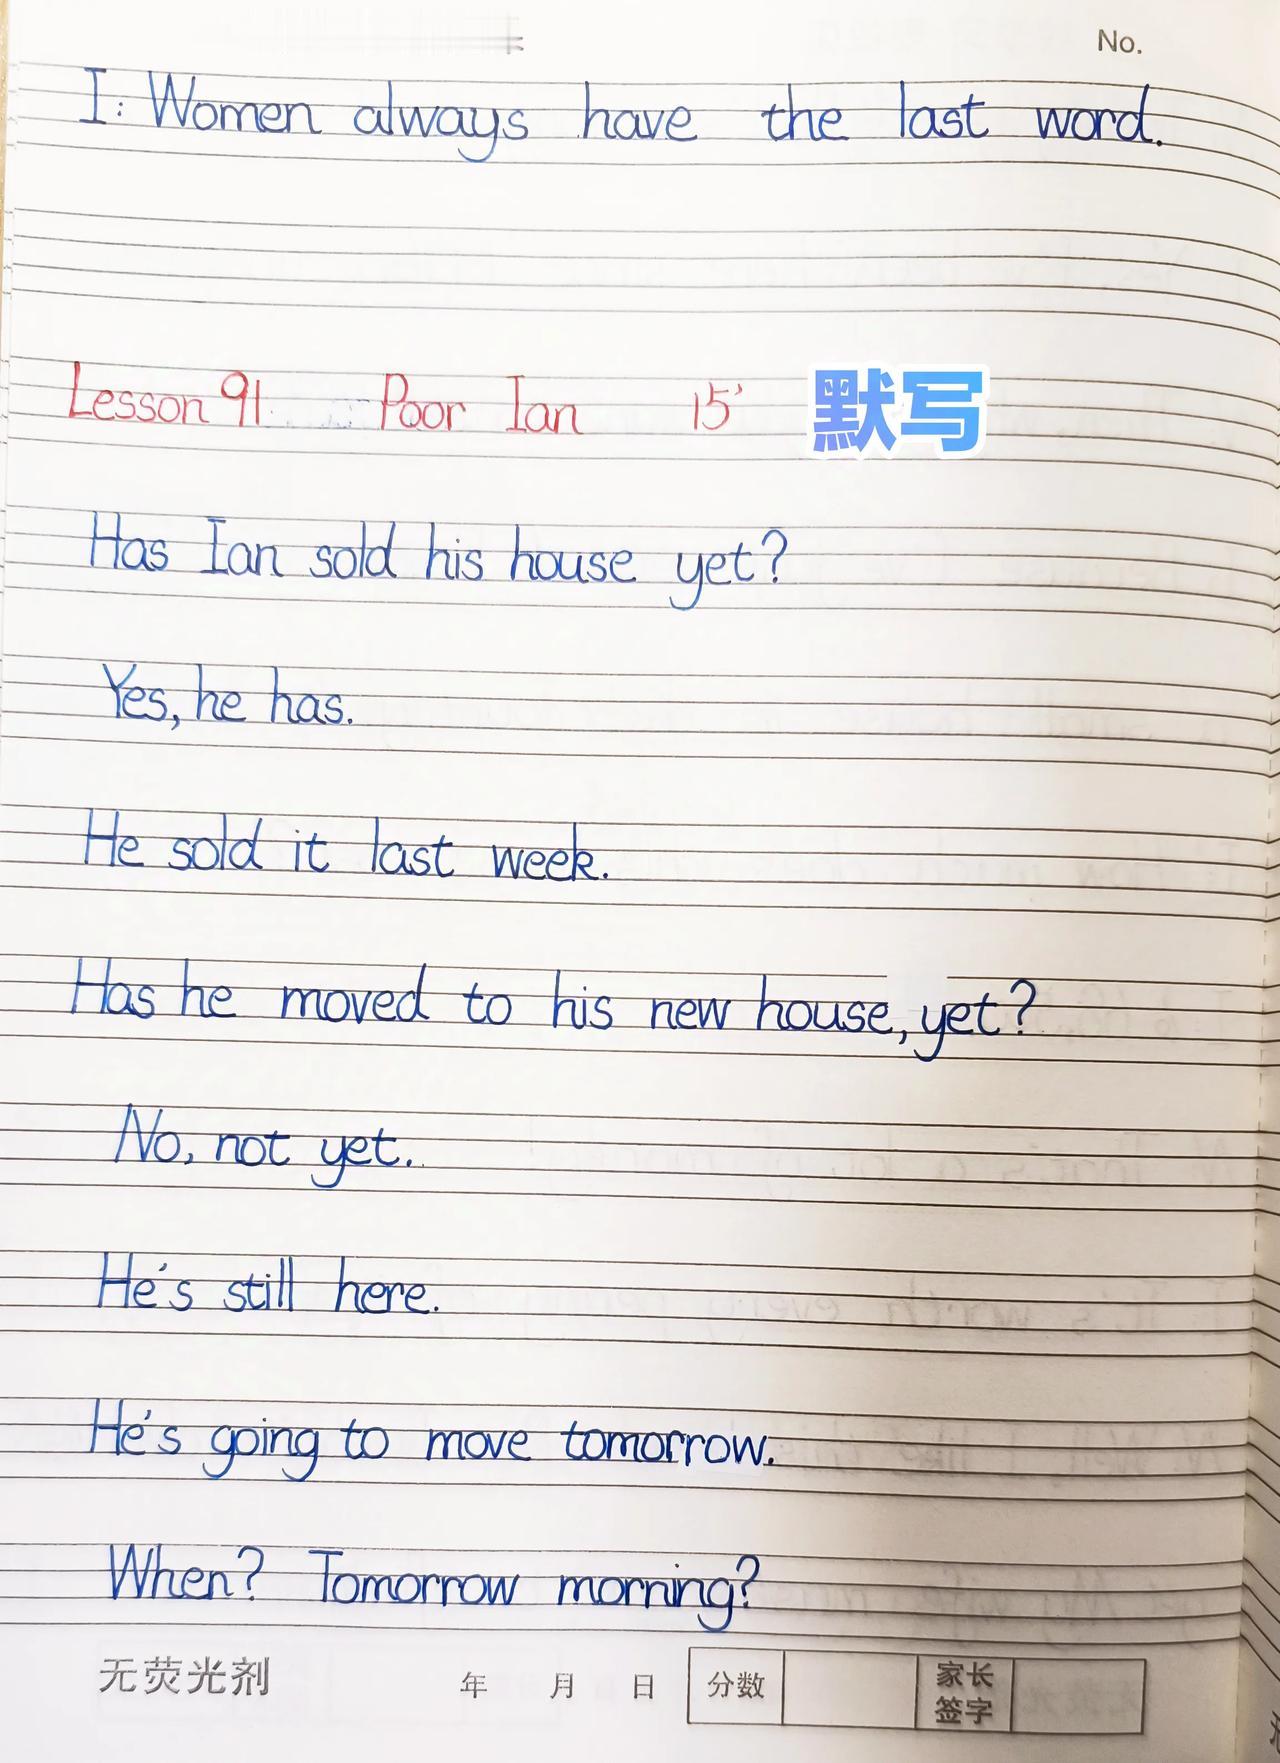 No.
I: Women always have the last word.
Lesson 91 Poor Ian 15' 默写
Has Ian sold his house yet?
Yes, he has.
He sold it last week.
Has he moved to his new house, yet?
No, not yet.
He's still here.
He's going to move tomorrow.
When? Tomorrow morning?
无荧光剂 年 月 日 分数 家长签字